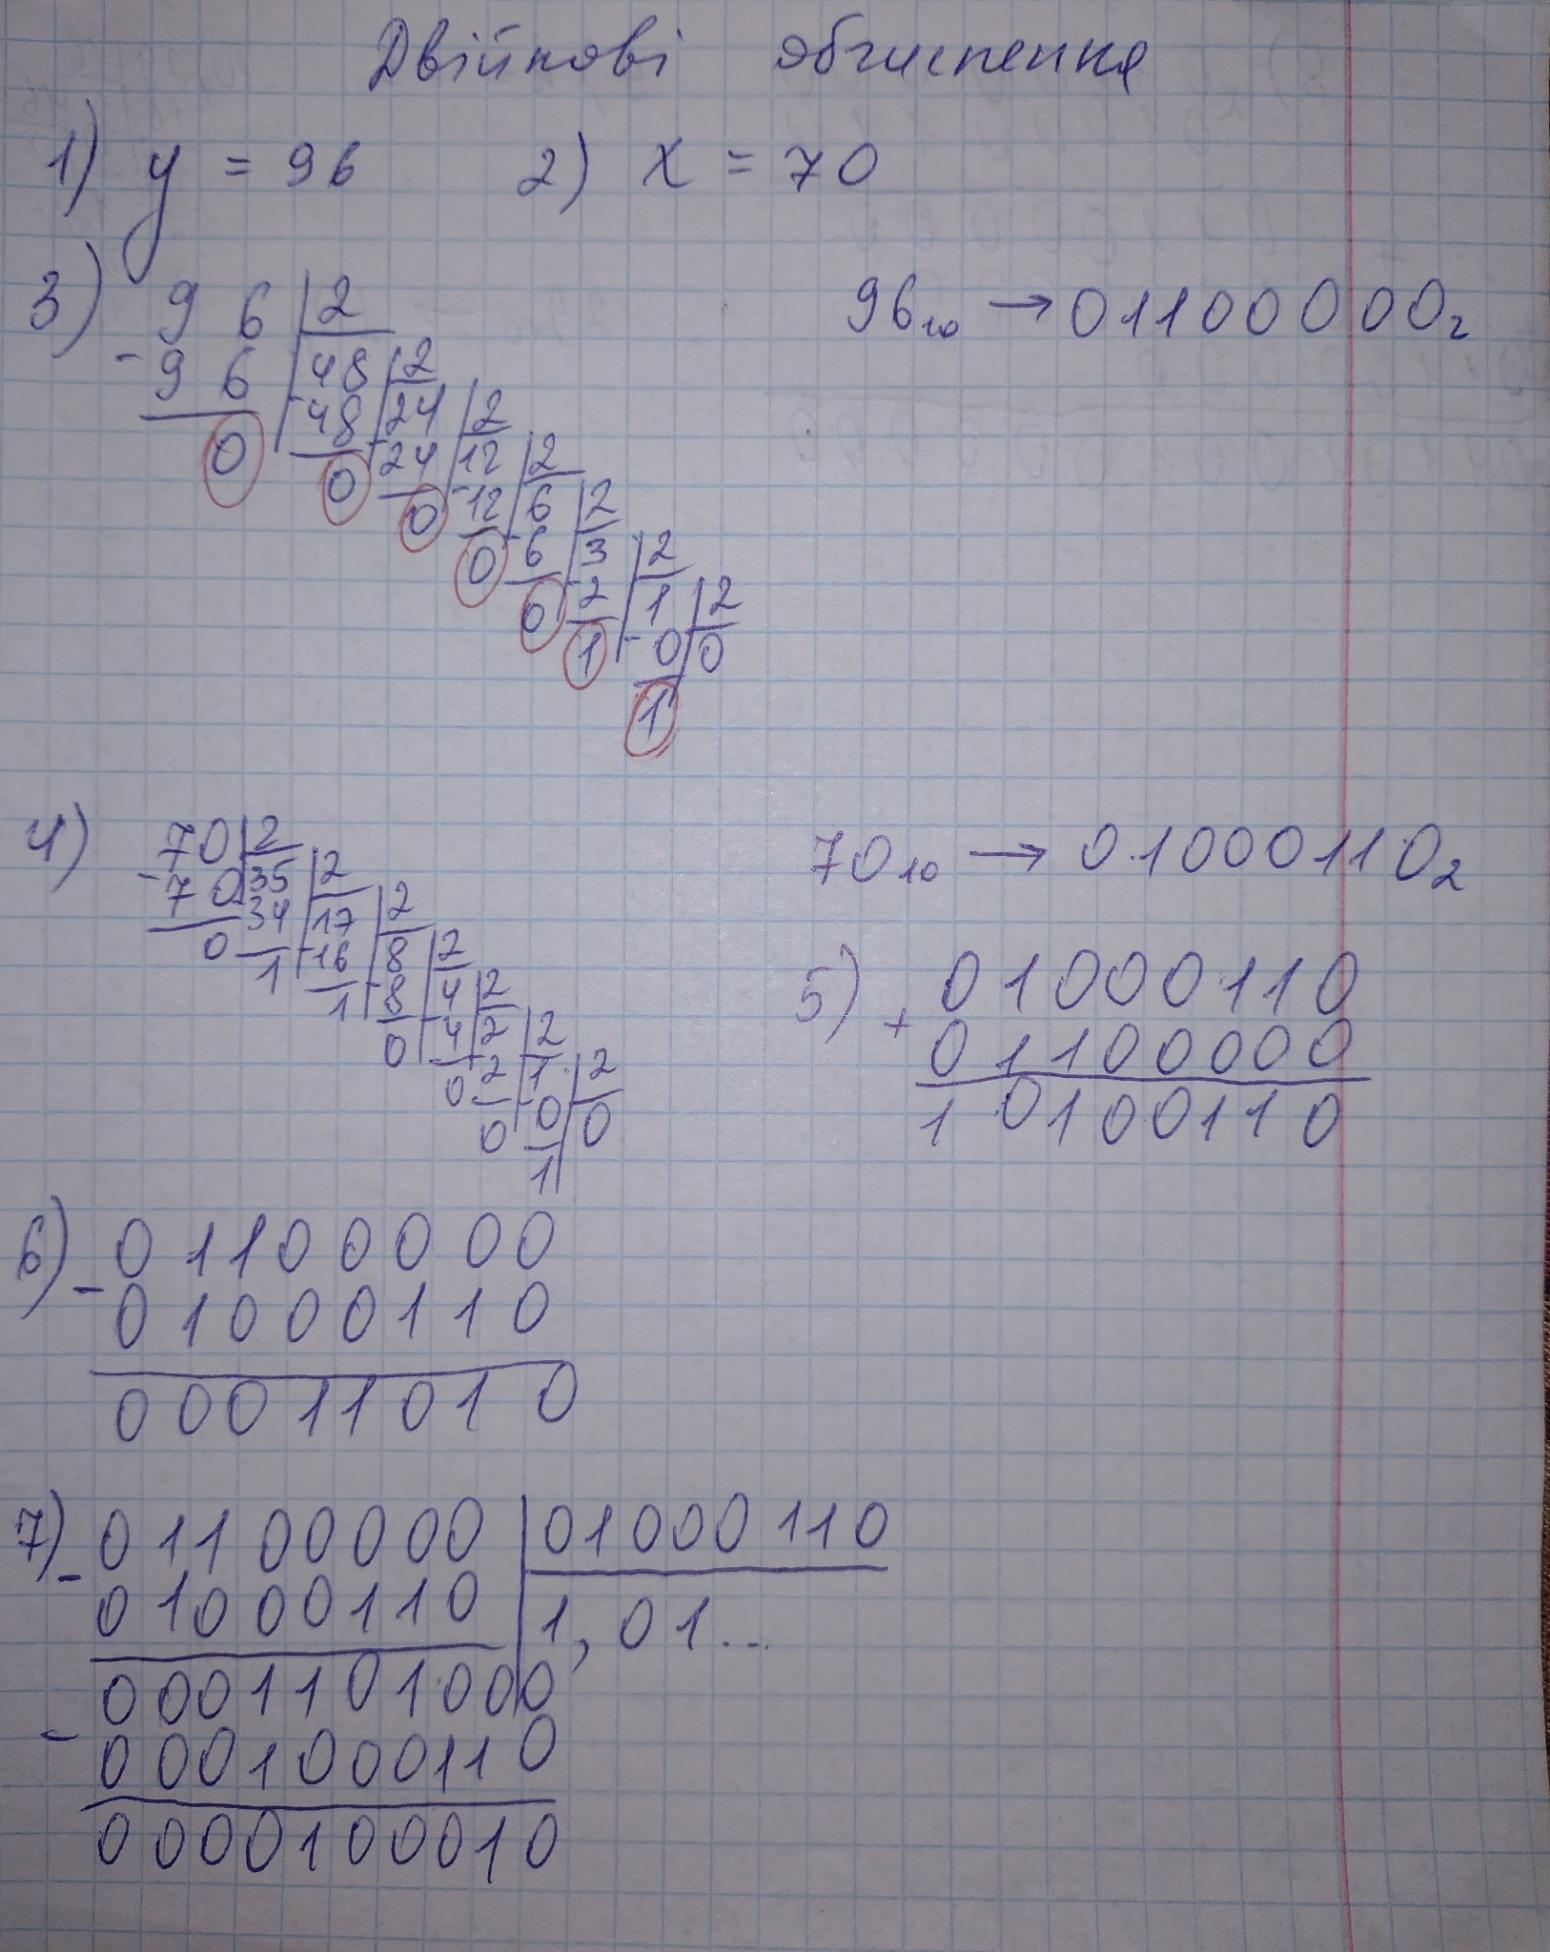 Двійкові обчислення
1) y = 96 2) x = 70
3) 96 | 2 96₁₀ → 01100000₂
- 96 | 48 | 2
0 - 48 | 24 | 2
0 - 24 | 12 | 2
0 - 12 | 6 | 2
0 - 6 | 3 | 2
0 - 2 | 1 | 2
1 - 0 | 0
1
4) 70 | 2 70₁₀ → 01000110₂
- 70 | 35 | 2
0 34 | 17 | 2
1 - 16 | 8 | 2
1 - 8 | 4 | 2
0 - 4 | 2 | 2
0 - 2 | 1 | 2
0 - 0 | 0
1
5) 01000110
+ 01100000
10100110
6) 01100000
- 01000110
00011010
7) - 01100000 | 01000110
01000110 | 1,01...
0001101000
- 0001000110
0000100010